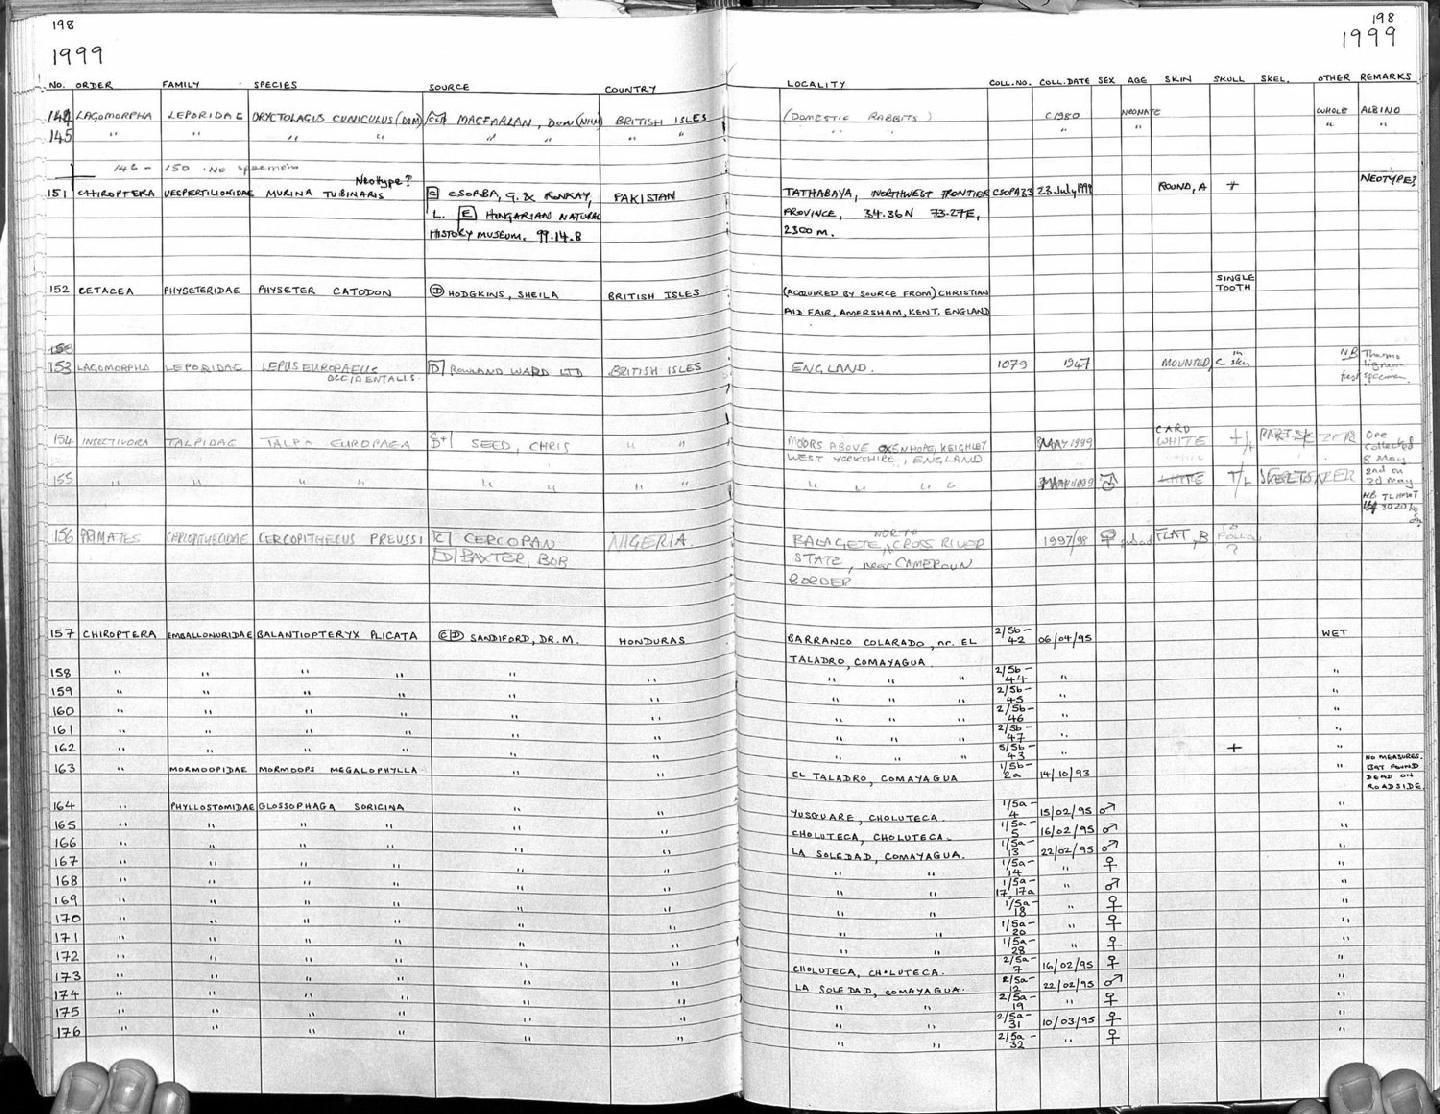 198
198
1999
1999
NO. ORDER FAMILY SPECIES SOURCE COUNTRY LOCALITY COLL.NO. COLL.DATE SEX AGE SKIN SKULL SKEL. OTHER REMARKS
144 LAGOMORPHA LEPORIDAE ORYCTOLAGUS CUNICULUS (DOM) MACFARLAN, BRITISH ISLES (DOMESTIC RABBITS) C1980 NEONATE WHOLE ALBINO
145 " " " " " " " " " " " " " "
146 - 150 . No specimens
Neotype? NEOTYPE?
151 CHIROPTERA VESPERTILIONIDAE MURINA TUBINARIS C CSORBA, G. & RONKAY, PAKISTAN TATHABAYA, NORTHWEST FRONTIER CSOPA33 23 July 1998 ROUND, A +
L. E HUNGARIAN NATURAL PROVINCE, 34.36N 73.27E,
HISTORY MUSEUM. 99.14.8 2300 m.
SINGLE
152 CETACEA PHYSETERIDAE PHYSETER CATODON D HODGKINS, SHEILA BRITISH ISLES (ACQUIRED BY SOURCE FROM) CHRISTIAN TOOTH
AID FAIR, AMERSHAM, KENT, ENGLAND
153 LAGOMORPHA LEPORIDAE LEPUS EUROPAEUS D ROWLAND WARD LTD BRITISH ISLES ENGLAND. 1079 1947 MOUNTED, C in skin NB Thermo
OCCIDENTALIS. lignum
test specimen.
154 INSECTIVORA TALPIDAE TALPA EUROPAEA SEED, CHRIS " " MOORS ABOVE OXENHOPE, KEIGHLEY MAY 1999 CARD WHITE + One
WEST YORKSHIRE, ENGLAND collected
8 May
155 " " " " " " " " " " " " WHITE 2nd on
2d May
156 PRIMATES CERCOPITHECIDAE CERCOPITHECUS PREUSSI C CERCOPAN NIGERIA NORTH 1997/98 ♀ FLAT, B
D BAXTER, BOB CROSS RIVER
STATE, near CAMEROUN
BORDER
157 CHIROPTERA EMBALLONURIDAE BALANTIOPTERYX PLICATA C D SANDIFORD, DR. M. HONDURAS BARRANCO COLARADO, nr. EL 2/5b-42 06/04/95 WET
TALADRO, COMAYAGUA.
158 " " " " " " " " " 2/5b-44 " "
159 " " " " " " " " " 2/5b-45 " "
160 " " " " " " " " " 2/5b-46 " "
161 " " " " " " " " " 2/5b-47 " "
162 " " " " " " " " " 5/5b-43 " + "
163 " MORMOOPIDAE MORMOOPS MEGALOPHYLLA " " EL TALADRO, COMAYAGUA 1/5b-2a 14/10/93 " NO MEASURES.
BAT FOUND
DEAD ON
ROADSIDE.
164 " PHYLLOSTOMIDAE GLOSSOPHAGA SORICINA " " YUSGUARE, CHOLUTECA. 1/5a-4 15/02/95 ♂ "
165 " " " " " " CHOLUTECA, CHOLUTECA. 1/5a-5 16/02/95 ♂ "
166 " " " " " " LA SOLEDAD, COMAYAGUA. 1/5a-13 22/02/95 ♂ "
167 " " " " " " " " 1/5a-14 " ♀ "
168 " " " " " " " " 1/5a-17 17a " ♂ "
169 " " " " " " " " 1/5a-18 " ♀ "
170 " " " " " " " " 1/5a-20 " ♀ "
171 " " " " " " " " 1/5a-28 " ♀ "
172 " " " " " " CHOLUTECA, CHOLUTECA. 2/5a-7 16/02/95 ♀ "
173 " " " " " " LA SOLEDAD, COMAYAGUA. 2/5a-12 22/02/95 ♂ "
174 " " " " " " " " 2/5a-19 " ♀ "
175 " " " " " " " " 2/5a-31 10/03/95 ♀ "
176 " " " " " " " " 2/5a-32 " ♀ "